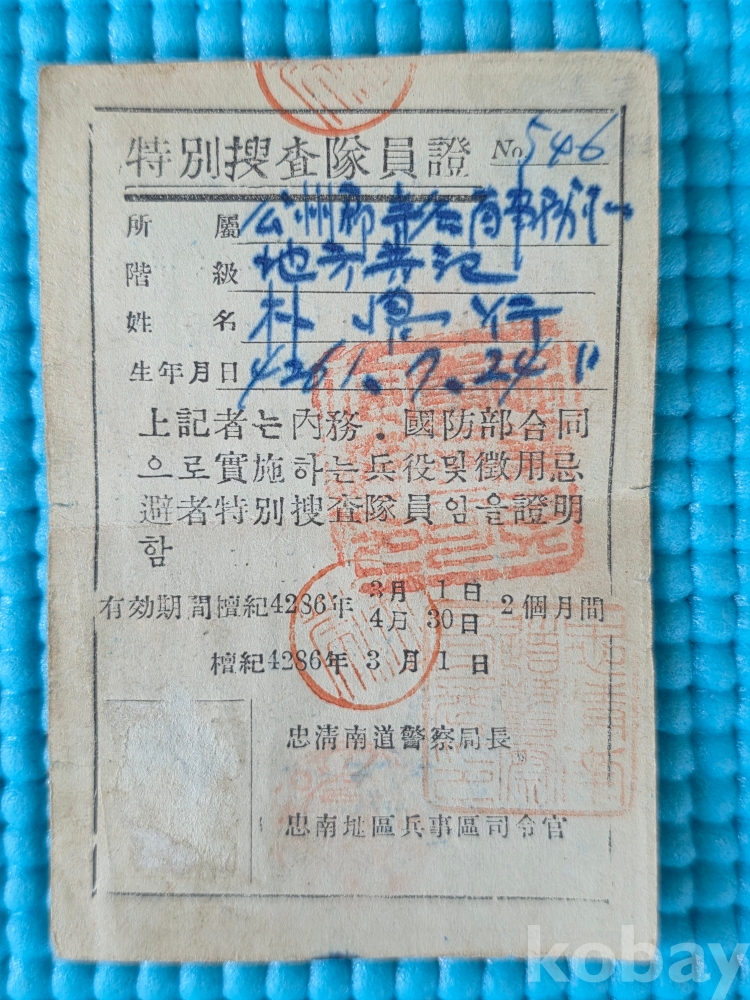 特別搜査隊員證 No 546
所屬 公州郡 寺谷面事務所
階級 地方書記
姓名 朴
生年月日 4261.7.24
上記者는內務．國防部合同
으로實施하는兵役및徵用忌
避者特別搜査隊員임을證明
함
有効期間檀紀4286年 3月 1日 4月 30日 2個月間
檀紀4286年 3月 1日
忠淸南道警察局長
忠南地區兵事區司令官
kobay